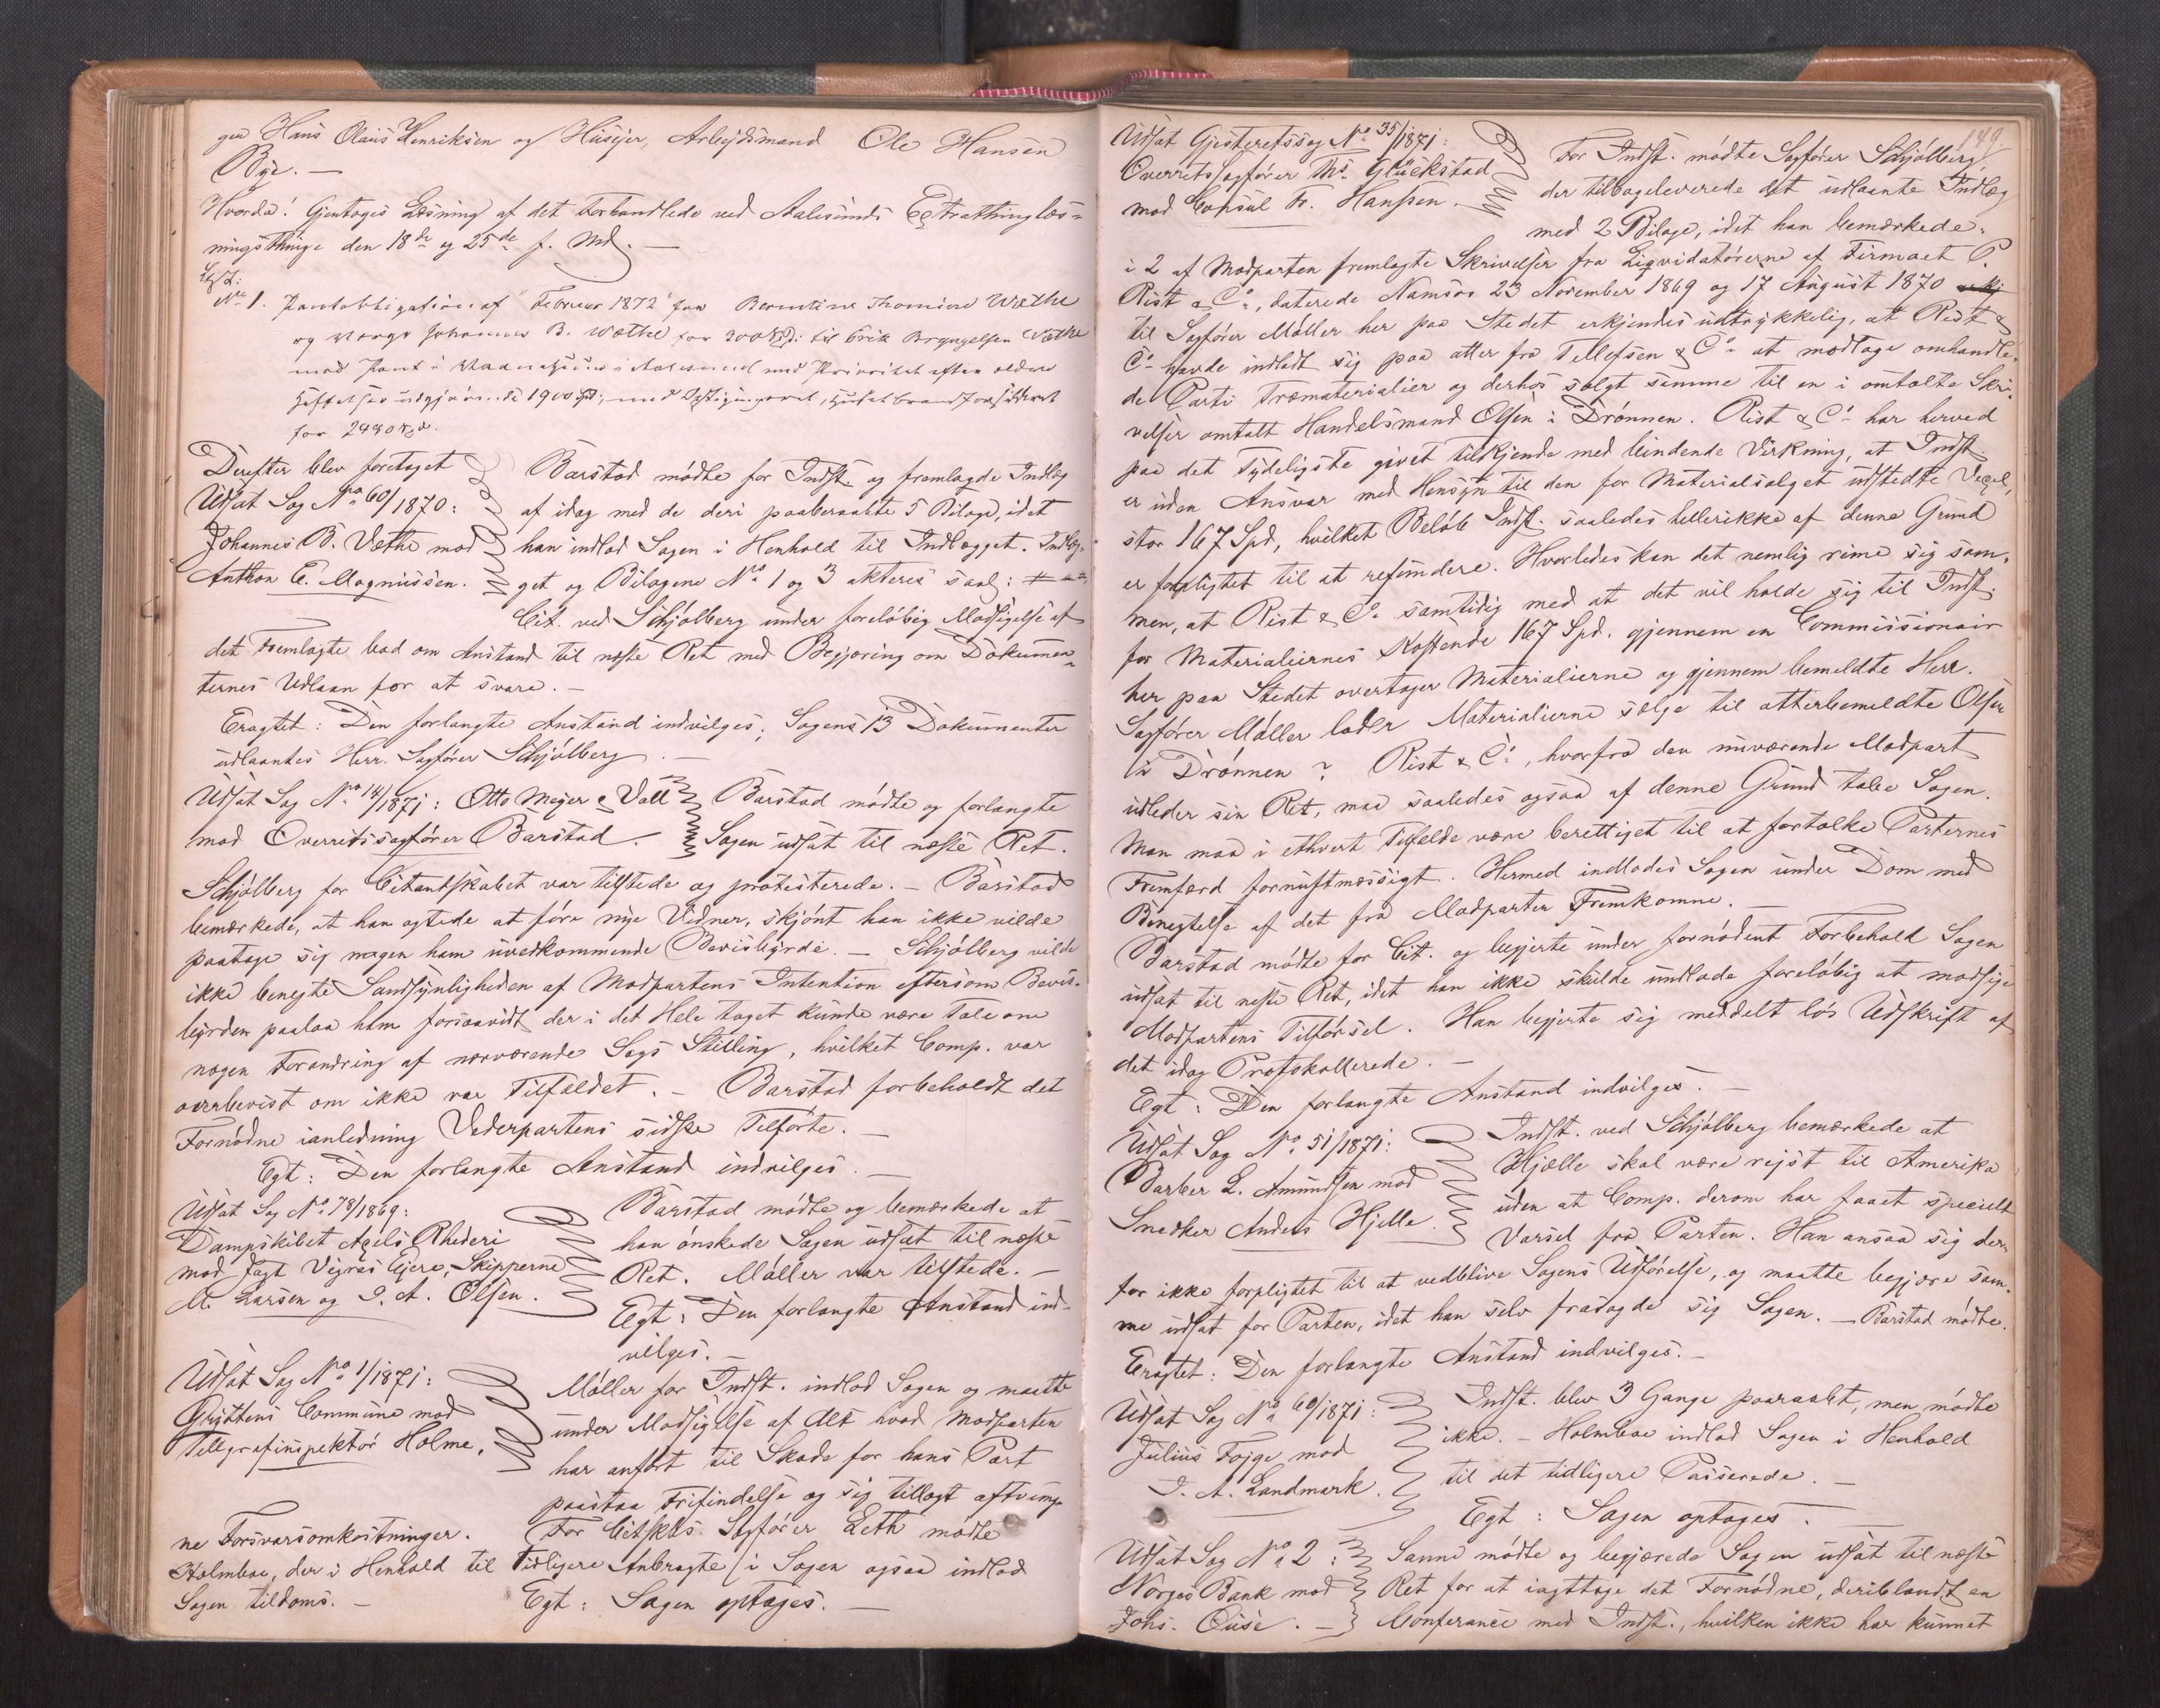 gen Hans Olaus Henriksen og Husejer, Arbejdsmand Ole Hansen
Bye. —
Hvorda! Gjentoges Læsning af det forhandlede ved Aalesunds Extrathinglæs-
ningsthinge den 18de og 25de f. Md. —
Læst:
No 1. Pantobligation af Februar 1872 fra Berntine Thomine Wæthe
og Johannes B. Wæthe for 300 Spd. til Erik Bryngelsen Wæthe
med Pant i i Aalesund med Prioritet efter ældre
1900 Spd.,
for 2480 Spd.
Derefter blev foretaget
Udsat Sag No 60/1870:
Johannes B. Væthe mod
Anthon E. Magnussen.
Barstad mødte for Indst. og fremlagde Indlæg
af idag med de deri paaberaabte 5 Bilage, idet
han indlod Sagen i Henhold til Indlægget. Indlæg-
get og Bilagene No 1 og 3 akteres saal:
Cit. ved Schjølberg under foreløbig Modsigelse af
det Fremlagte bad om Anstand til næste Ret med Begjæring om Dokumen-
ternes Udlaan for at svare. —
Eragtet: Den forlangte Anstand indvilges; Sagens 13 Dokumenter
udlaantes Herr. Sagfører Schjølberg. —
Udsat Sag No 14/1871: Otto Mejer & Vall
mod Overretssagfører Barstad.
Barstad mødte og forlangte
Sagen udsat til næste Ret.
Schjølberg for Citantskabet var tilstede og protesterede. — Barstad
bemærkede, at han agtede at føre nye Vidner, skjønt han ikke vilde
paatage sig nogen ham uvedkommende Bevisbyrde. — Schjølberg vilde
ikke benegte Sandsynligheden af Modpartens Intention eftersom Bevis-
byrden paalaa ham forsaavidt der i det Hele taget kunde være Tale om
nogen Forandring af nærværende Sags Stilling, hvilket Comp. var
overbevist om ikke var Tilfældet. — Barstad forbeholdt det
Fornødne ianledning Vederpartens sidste Tilførte. —
Egt: Den forlangte Anstand indvilges. —
Udsat Sag No 78/1869:
Dampskibet Agils Rhederi
mod Jagt Vigras Ejere, Skipperne
M. Larsen og I. A. Olsen.
Barstad mødte og bemærkede at
han ønskede Sagen udsat til næste
Ret. Møller var tilstede. —
Egt: Den forlangte Anstand ind-
vilges. —
Udsat Sag No 1/1871:
Gryttens Commune mod
Telegrafinspektør Holme.
Møller for Indst. indlod Sagen og maatte
under Modsigelse af Alt hvad Modparten
har anført til Skade for hans Part
paastaa Frifindelse og sig tillagt aftvung-
ne Forsvarsomkostninger. For Citskbs. Sagfører Leth mødte
Holmboe, der i Henhold til Tidligere Anbragte i Sagen ogsaa indlod
Sagen tildoms. — Egt: Sagen optages. —
149.
Udsat Gjesteretssag No 35/1871:
Overretssagfører Ths. Glückstad
mod Consul Fr. Hanssen.
For Indst. mødte Sagfører Schjølberg
der tilbageleverede det udlaante Indlæg
med 2 Bilage, idet han bemærkede:
i 2 af Modparten fremlagte Skrivelser fra Liqvidatørerne af Firmaet P.
Rist & Co., daterede Namsos 23 November 1869 og 17 August 1870
til Sagfører Møller her paa Stedet erkjendes udtrykkelig, at Rist &
Co. havde indladt sig paa atter fra Tellefsen & Co. at modtage omhandle-
de Parti Træmaterialier og derhos solgt samme til en i omtalte Skri-
velser omtalt Handelsmand Olsen i Drønnen. Rist & Co. har herved
paa det Tydeligste givet tilkjende med bindende Virkning, at Indst.
er uden Ansvar med Hensyn til den for Materialsalget udstedte Vexel,
stor 167 Spd, hvilket Beløb Indst. saaledes hellerikke af denne Grund
er forpligtet til at refundere. Hvorledes kan det nemlig rime sig sam-
men, at Rist & Co. samtidig med at det vil holde sig til Indst.
for Materialiernes Kostende 167 Spd. gjennem en Commissionair
her paa Stedet overtager Materialierne og gjennem bemeldte Herr.
Sagfører Møller lader Materialierne sælge til atterbemeldte Olsen
i Drønnen? Rist & Co., hvorfra den nuværende Modpart
udleder sin Ret, maa saaledes ogsaa af denne Grund tabe Sagen.
Man maa i ethvert Tilfælde være berettiget til at fortolke Parternes
Fremfærd fornuftmæssigt. Hermed indlodes Sagen under Dom med
Benegtelse af det fra Modparten Fremkomne. —
Barstad mødte for Cit. og begjerte under fornødent Forbehold Sagen
udsat til neste Ret, idet han ikke skulde undlade foreløbig at modsige
Modpartens Tilførsel. Han begjerte sig meddelt løs Udskrift af
det idag Protokollerede. —
Egt: Den forlangte Anstand indvilges. —
Udsat Sag No 51/1871:
Barber L. Amundsen mod
Snedker Anders Hjelle.
Indst. ved Schjølberg bemærkede at
Hjælle skal være rejst til Amerika
uden at Comp. derom har faaet specielt
Varsel fra Parten. Han ansaa sig der-
for ikke forpligtet til at vedblive Sagens Udførelse, og maatte begjære sam-
me udsat for Parten, idet han selv frasagde sig Sagen. — Barstad mødte.
Eragtet: Den forlangte Anstand indvilges. —
Udsat Sag No 60/1871:
Julius Fojge mod
I. A. Landmark.
Indst. blev 3 Gange paaraabt, men mødte
ikke. — Holmboe indlod Sagen i Henhold
til det tidligere Passerede. —
Egt: Sagen optages. —
Udsat Sag No 2:
Norges Bank mod
Johs. Øuse. —
Sanne mødte og begjærede Sagen udsat til næste
Ret for at iagttage det Fornødne, deriblandt en
Conferance med Indst., hvilken ikke har kunnet